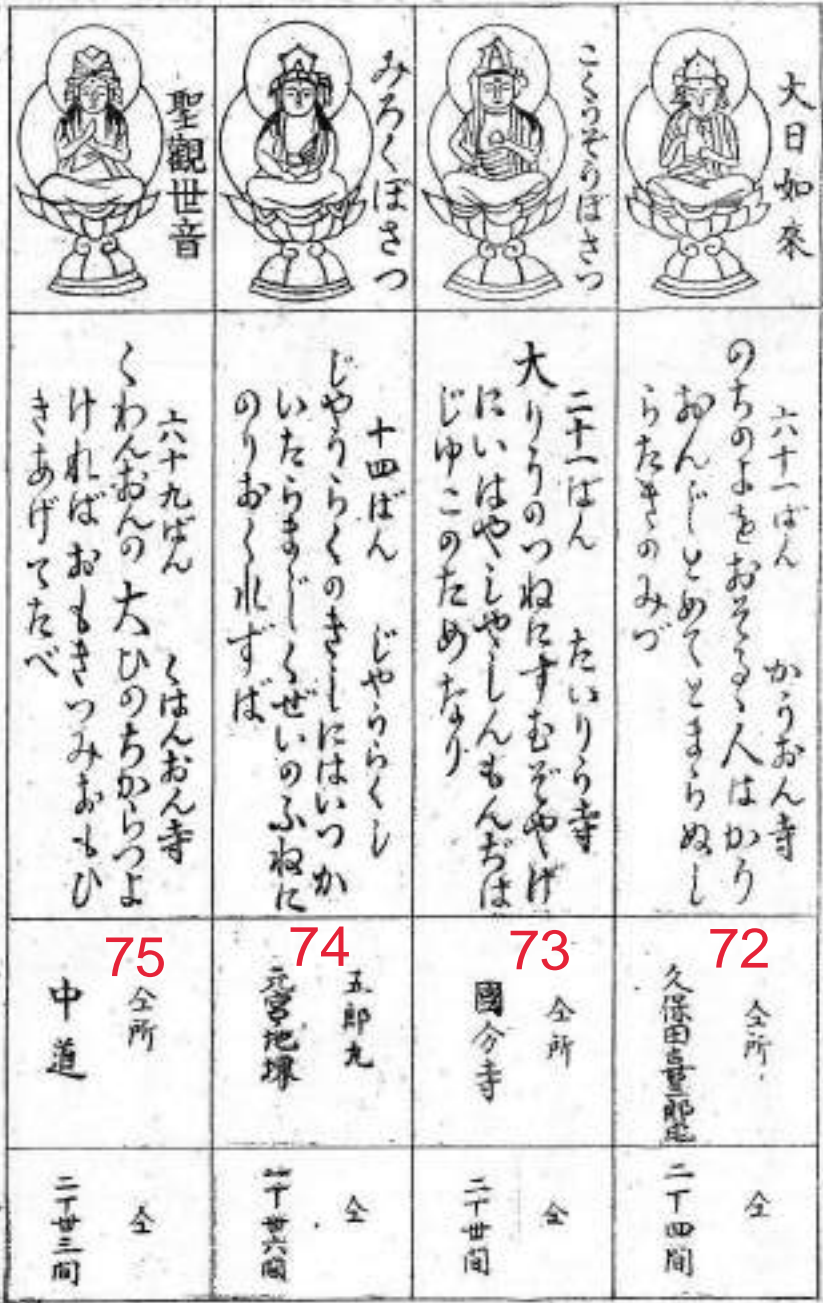 大日如來
六十一ばん かうおん寺
のちのよをおそるゝ人はかり
おんじとめてとまらぬし
らたきのみづ
72
仝所
仝
二丁四間
こくうぞうぼさつ
二十一ばん たいりう寺
大りうのつねにすむぞやげ
にいはやしやしんもんぢは
じゆごのためなり
73
仝所
國分寺
仝
二丁廿間
みろくぼさつ
十四ばん じやうらくし
じやうらくのきしにはいつか
いたらまじくぜいのふねに
のりおくれずば
74
五郎丸
元宮地堺
仝
丁廿六間
聖觀世音
六十九ばん くはんおん寺
くわんおんの大ひのちからつよ
ければおもきつみおもひ
きあげてたべ
75
仝所
中道
仝
二丁廿三間